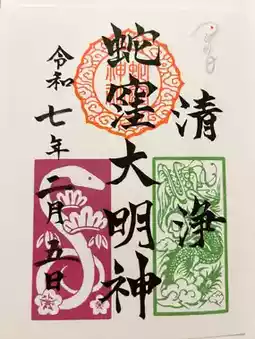 清浄
蛇窪大明神
令和七年二月五日